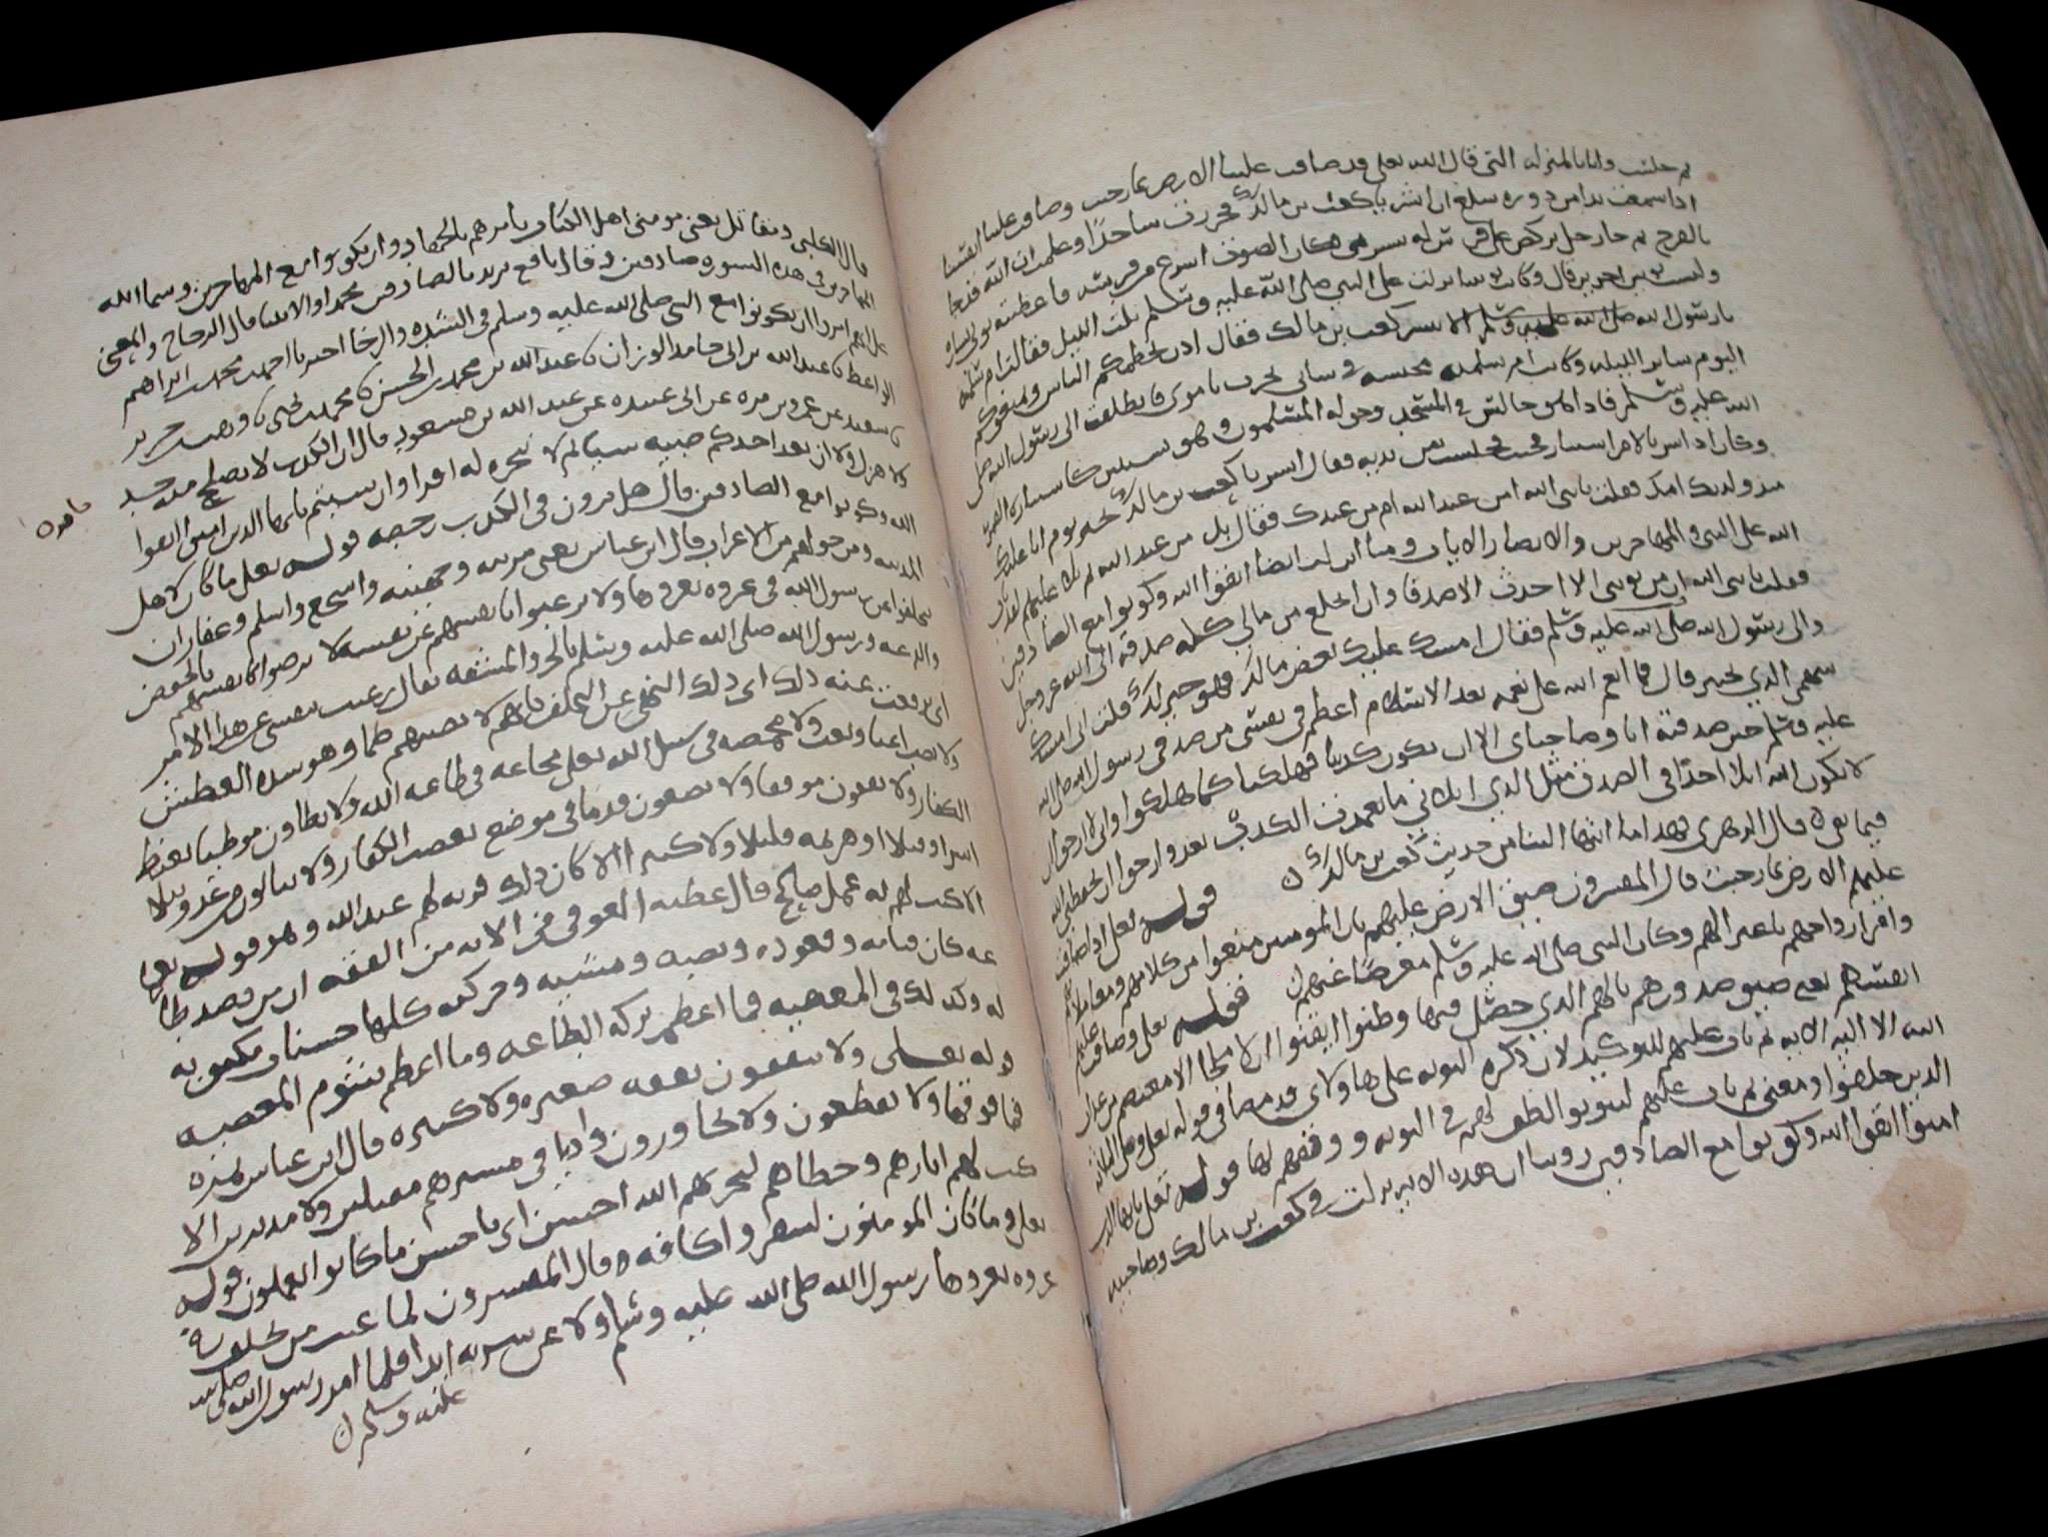 ثم جلست وانا بالمنزله التي قال الله تعلى قد ضاقت علينا الارض بما رحبت وضاقت علينا انفسنا
اذ سمعت ندا من ذروه سلع ان ابشر يا كعب بن مالك فخررت ساجدا وعلمت ان الله قد جا
بالفرج ثم جا رجل يركض على فرس له يبشرني فكان الصوت اسرع من فرسه فاعطيته ثوبي بشاره
ولبست ثوبين اخرين قال وكانت توبتنا نزلت على النبي صلى الله عليه وسلم ثلث الليل فقالت ام سلمه
يا رسول الله الا نبشر كعب بن مالك فقال اذن يحطمكم الناس ويمنعوكم
النوم ساير الليله وكانت ام سلمه محسنه في شاني تحزن بامري فانطلقت الى رسول الله صلى
الله عليه وسلم فاذا هو جالس في المسجد وحوله المسلمون وهو يستنير كاستناره القمر
وكان اذا سر بالامر استنار فجيت فجلست بين يديه فقال ابشر يا كعب بن مالك بخير يوم اتا عليك
منذ ولدتك امك فقلت يا نبي الله امن عند الله ام من عندك فقال بل من عند الله ثم تلا عليهم لقد تاب
الله على النبي والمهاجرين والانصار الايات وفينا انزلت ايضا اتقوا الله وكونوا مع الصادقين
فقلت يا نبي الله ان من توبتي الا احدث الا صدقا وان انخلع من مالي كله صدقه الى الله عز وجل
والى رسول الله صلى الله عليه وسلم فقال امسك عليك بعض مالك فهو خير لك فقلت اني امسك
سهمي الذي بخيبر قال فما انعم الله علي نعمه بعد الاسلام اعظم في نفسي من صدقي رسول الله صلى الله
عليه وسلم حين صدقته انا وصاحباي الا ان نكون كذبنا فهلكنا كما هلكوا واني لارجوا ان
لا يكون الله ابلا احدا في الصدق مثل الذي ابلاني ما تعمدت الكذب بعد وارجوا ان يحفظني الله
فيما بقي قال الزهري فهذا ما انتها الينا من حديث كعب بن مالك قوله تعلى اذا ضاقت
عليهم الارض بما رحبت قال المفسرون ضيق الارض عليهم بان المومنين منعوا من كلامهم ومعاملاتهم
وافرا زواجهم باعتزالهم وكان النبي صلى الله عليه وسلم معرضا عنهم قوله تعلى وضاقت عليهم
انفسهم يعني ضيق صدورهم بالهم الذي حصل فيها وظنوا ايقنوا ان لا ملجا الا معتصم من عذاب
الله الا اليه الا به ثم تاب عليهم للتوكيد لان ذكره التوبه على هاولاي قد مضا في قوله تعلى وعلى الثلاثه
الذين خلفوا ومعنى ثم تاب عليهم ليتوبوا لطف لهم في التوبه ووفقهم لها قوله تعلى يا ايها الذين
امنوا اتقوا الله وكونوا مع الصادقين روينا ان هذه الايه نزلت في كعب بن مالك وصاحبيه
قال الكلبي ومقاتل يعني مومني اهل الكتاب يامرهم بالجهاد وان يكونوا مع المهاجرين وسما الله
المهاجرين في هذه السوره صادقين وقال نافع يريد بالصادقين محمدا والانبيا قال الزجاج والمعنى
على انهم امروا ان يكونوا مع النبي صلى الله عليه وسلم في الشده والرخا اخبرنا احمد بن محمد بن ابراهيم
الواعظ نا عبدالله بن حامد الوزان نا عبدالله بن محمد بن الحسن نا محمد بن يحيى نا وهب بن جرير
نا سعيد عن عمرو بن مره عن ابي عبيده عن عبد الله بن مسعود قال ان الكذب لا يصلح منه جد
ولا هزل ولا ان يعد احدكم صبيه شيا ثم لا ينجزه له اقراوا ان شيتم يا ايها الذين امنوا اتقوا
الله وكونوا مع الصادقين قال هل ترون في الكذب رخصه قوله تعلى ما كان لاهل
المدينه ومن حولهم من الاعراب قال ابن عباس يعني مزينه وجهينه واشجع واسلم وغفار ان
يتخلفوا عن رسول الله في غزوه يغزوها ولا يرغبوا بانفسهم عن نفسه لا يرضوا لانفسهم بالخفض
والدعه ورسول الله صلى الله عليه وسلم بالحر والمشقه يقال رغبت بنفسي عن هذا الامر
اي ترفعت عنه ذلك اي ذلك النهي عن التخلف بانهم لا يصيبهم ظما وهو شده العطش
ولا نصب اعيا وتعب ولا مخمصه في سبيل الله يعني مجاعه في طاعه الله ولا يطاون موطيا يغيظ
الكفار ولا يضعون قدما في موضع يغضب الكفار ولا ينالون من عدو نيلا
اسرا وقتلا او هزيمه قليلا ولا كثيرا الا كان ذلك قربه لهم عند الله وهو قوله تعلى
الا كتب لهم به عمل صالح قال عطيه العوفي في الايه من الفقه ان من قصد طاعه
كان قيامه وقعوده ونصبه ومشيه وحركته كلها حسنات مكتوبه
له وكذلك في المعصيه فما اعظم بركه الطاعه وما اعظم شوم المعصيه
قوله تعلى ولا ينفقون نفقه صغيره ولا كبيره قال ابن عباس تمره
فما فوقها ولا يقطعون ولا يجاوزون واديا في مسيرهم مقبلين ولا مدبرين الا
كتب لهم اثارهم وخطاهم ليجزيهم الله احسن اي باحسن ما كانوا يعملون قوله
تعلى وما كان المومنون لينفروا كافه قال المفسرون لما عيب من تخلف عن
غزوه يغزوها رسول الله صلى الله عليه وسلم ولا عن سريه ابدا فلما امر رسول الله صلى الله
عليه وسلم